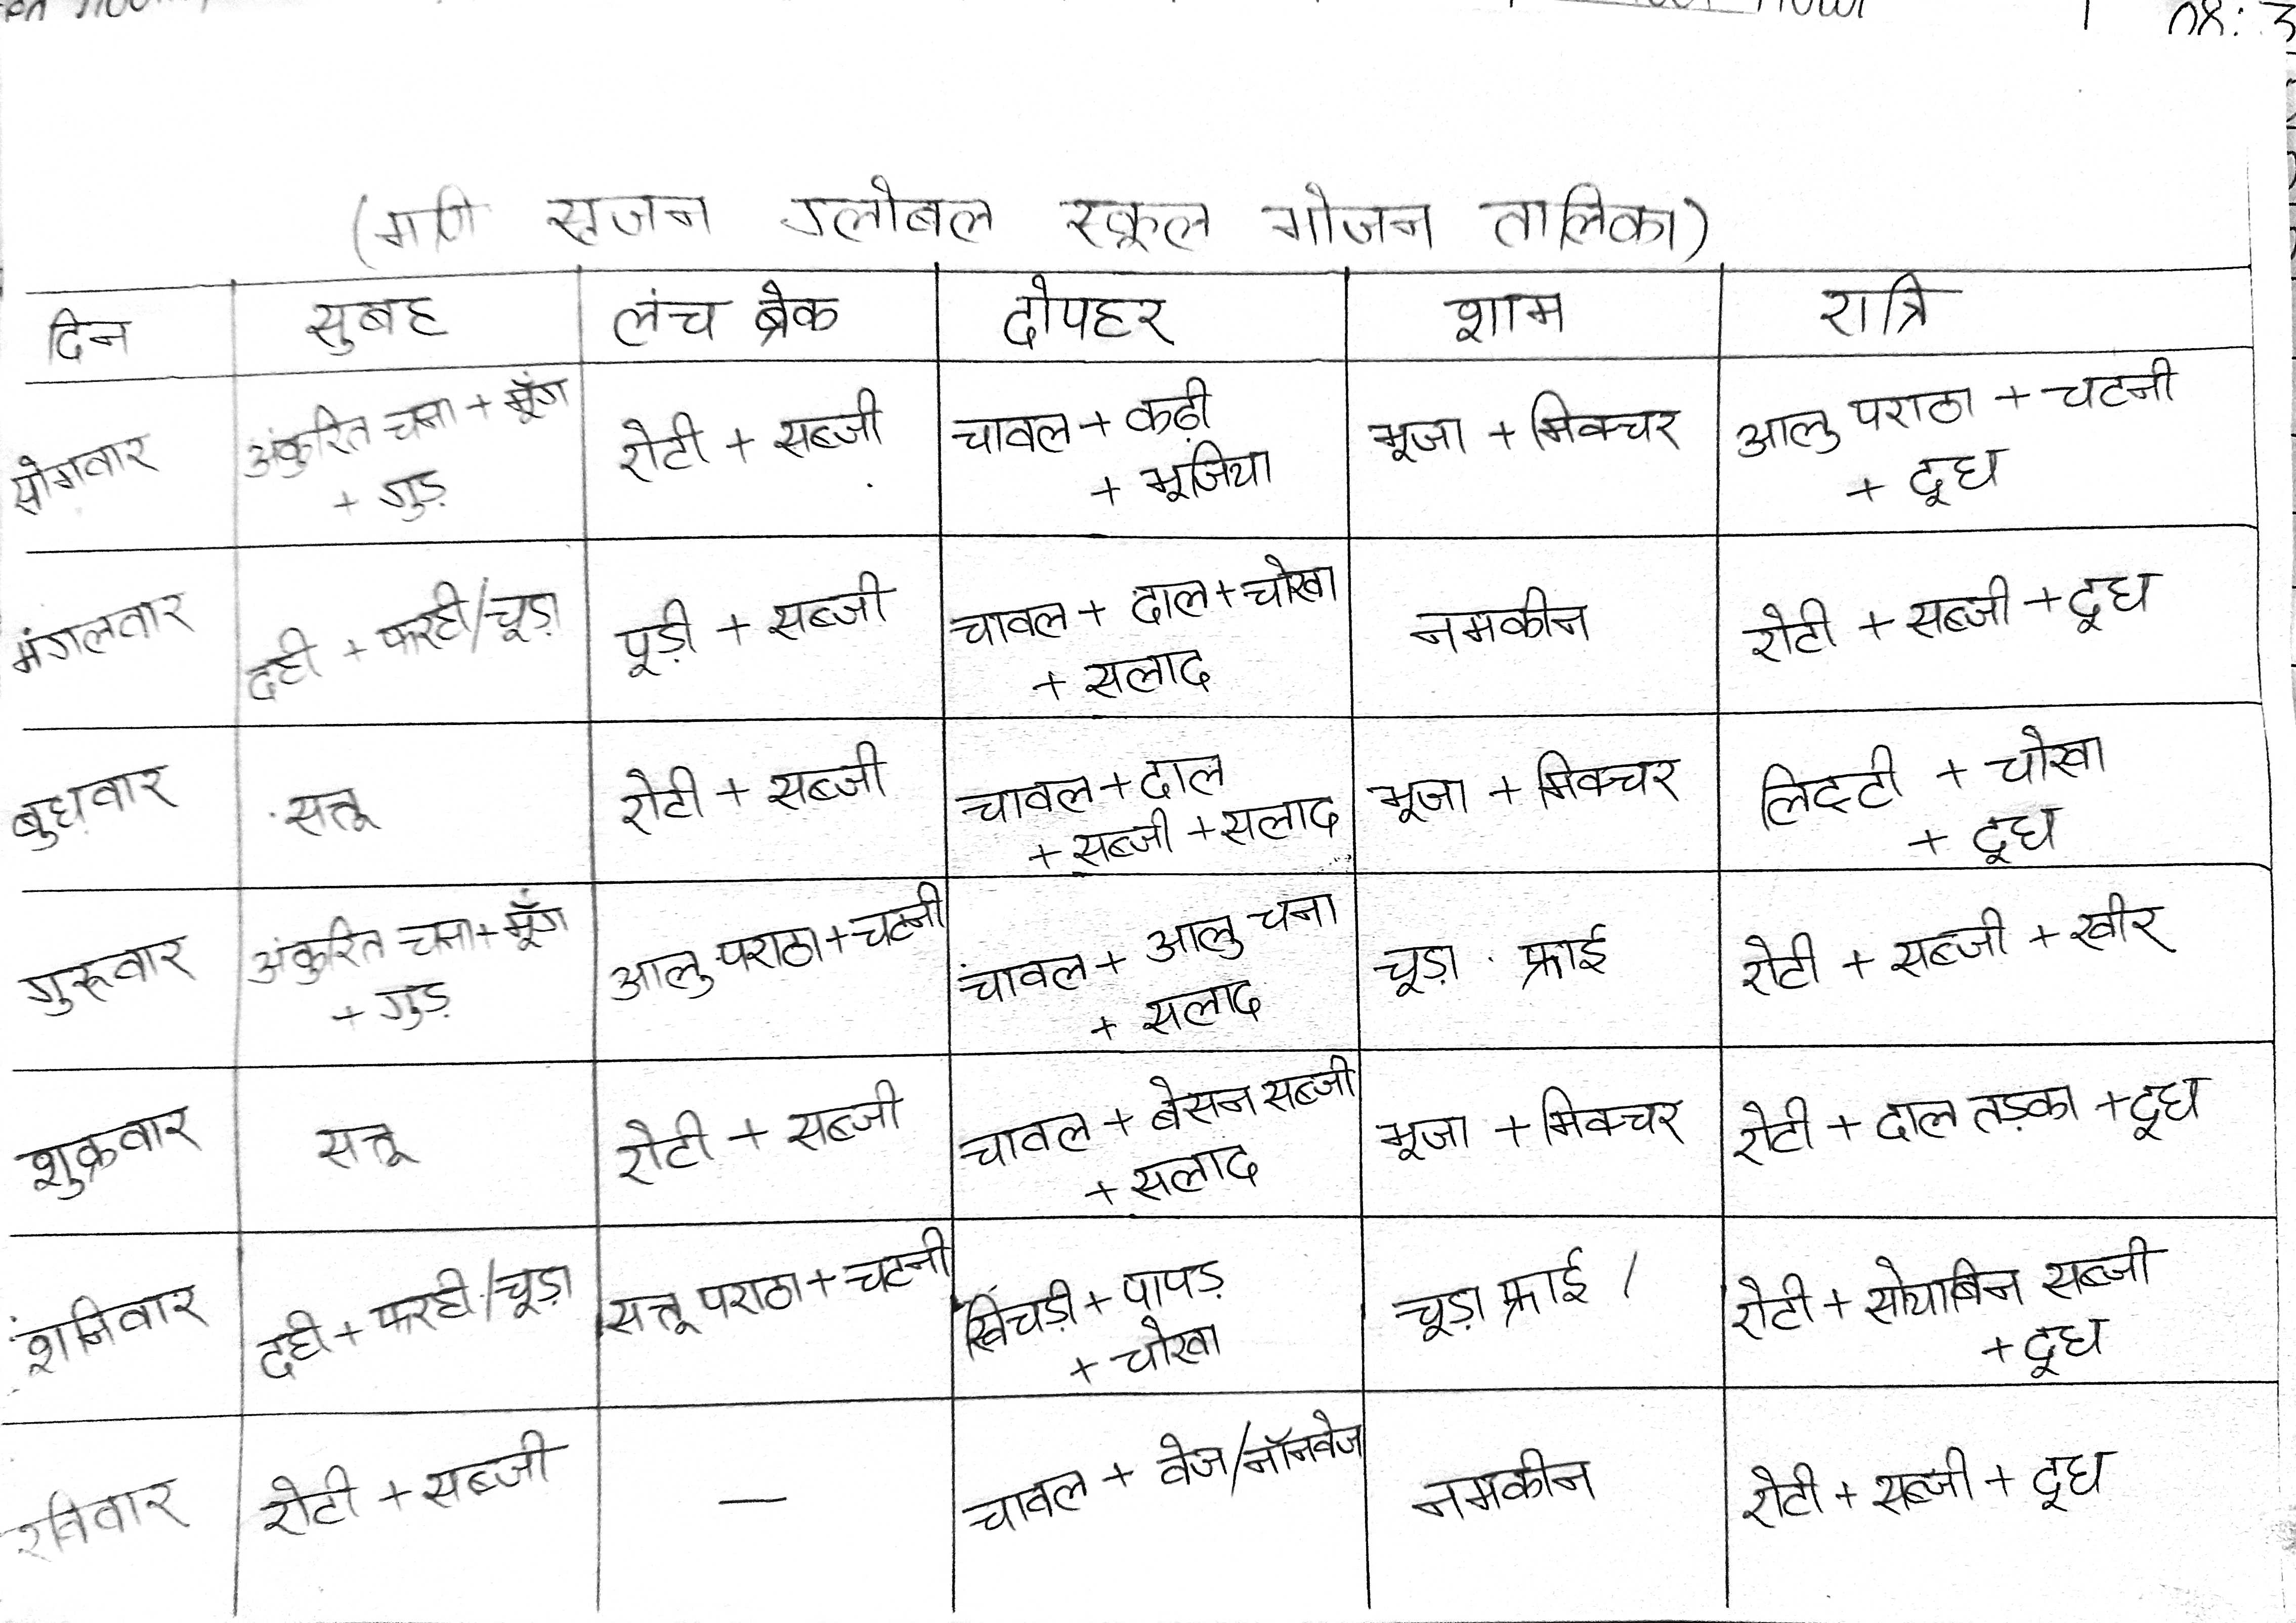 (मणि सृजन ग्लोबल स्कूल भोजन तालिका)
दिन सुबह लंच ब्रेक दोपहर शाम रात्रि
सोमवार अंकुरित चना + मूँग रोटी + सब्जी चावल + कढ़ी भूजा + मिक्चर आलु पराठा + चटनी
+ गुड़ + भूजिया + दूध
मंगलवार दही + फरही/चूड़ा पूड़ी + सब्जी चावल + दाल + चोखा नमकीन रोटी + सब्जी + दूध
+ सलाद
बुधवार सत्तू रोटी + सब्जी चावल + दाल भूजा + मिक्चर लिट्टी + चोखा
+ सब्जी + सलाद + दूध
गुरूवार अंकुरित चना + मूँग आलु पराठा + चटनी चावल + आलु चना चूड़ा फ्राई रोटी + सब्जी + खीर
+ गुड़ + सलाद
शुक्रवार सत्तू रोटी + सब्जी चावल + बेसन सब्जी भूजा + मिक्चर रोटी + दाल तड़का + दूध
+ सलाद
शनिवार दही + फरही/चूड़ा सत्तू पराठा + चटनी खिंचड़ी + पापड़ चूड़ा फ्राई / रोटी + सोयाबिन सब्जी
+ चोखा + दूध
रविवार रोटी + सब्जी — चावल + वेज/नॉनवेज नमकीन रोटी + सब्जी + दूध